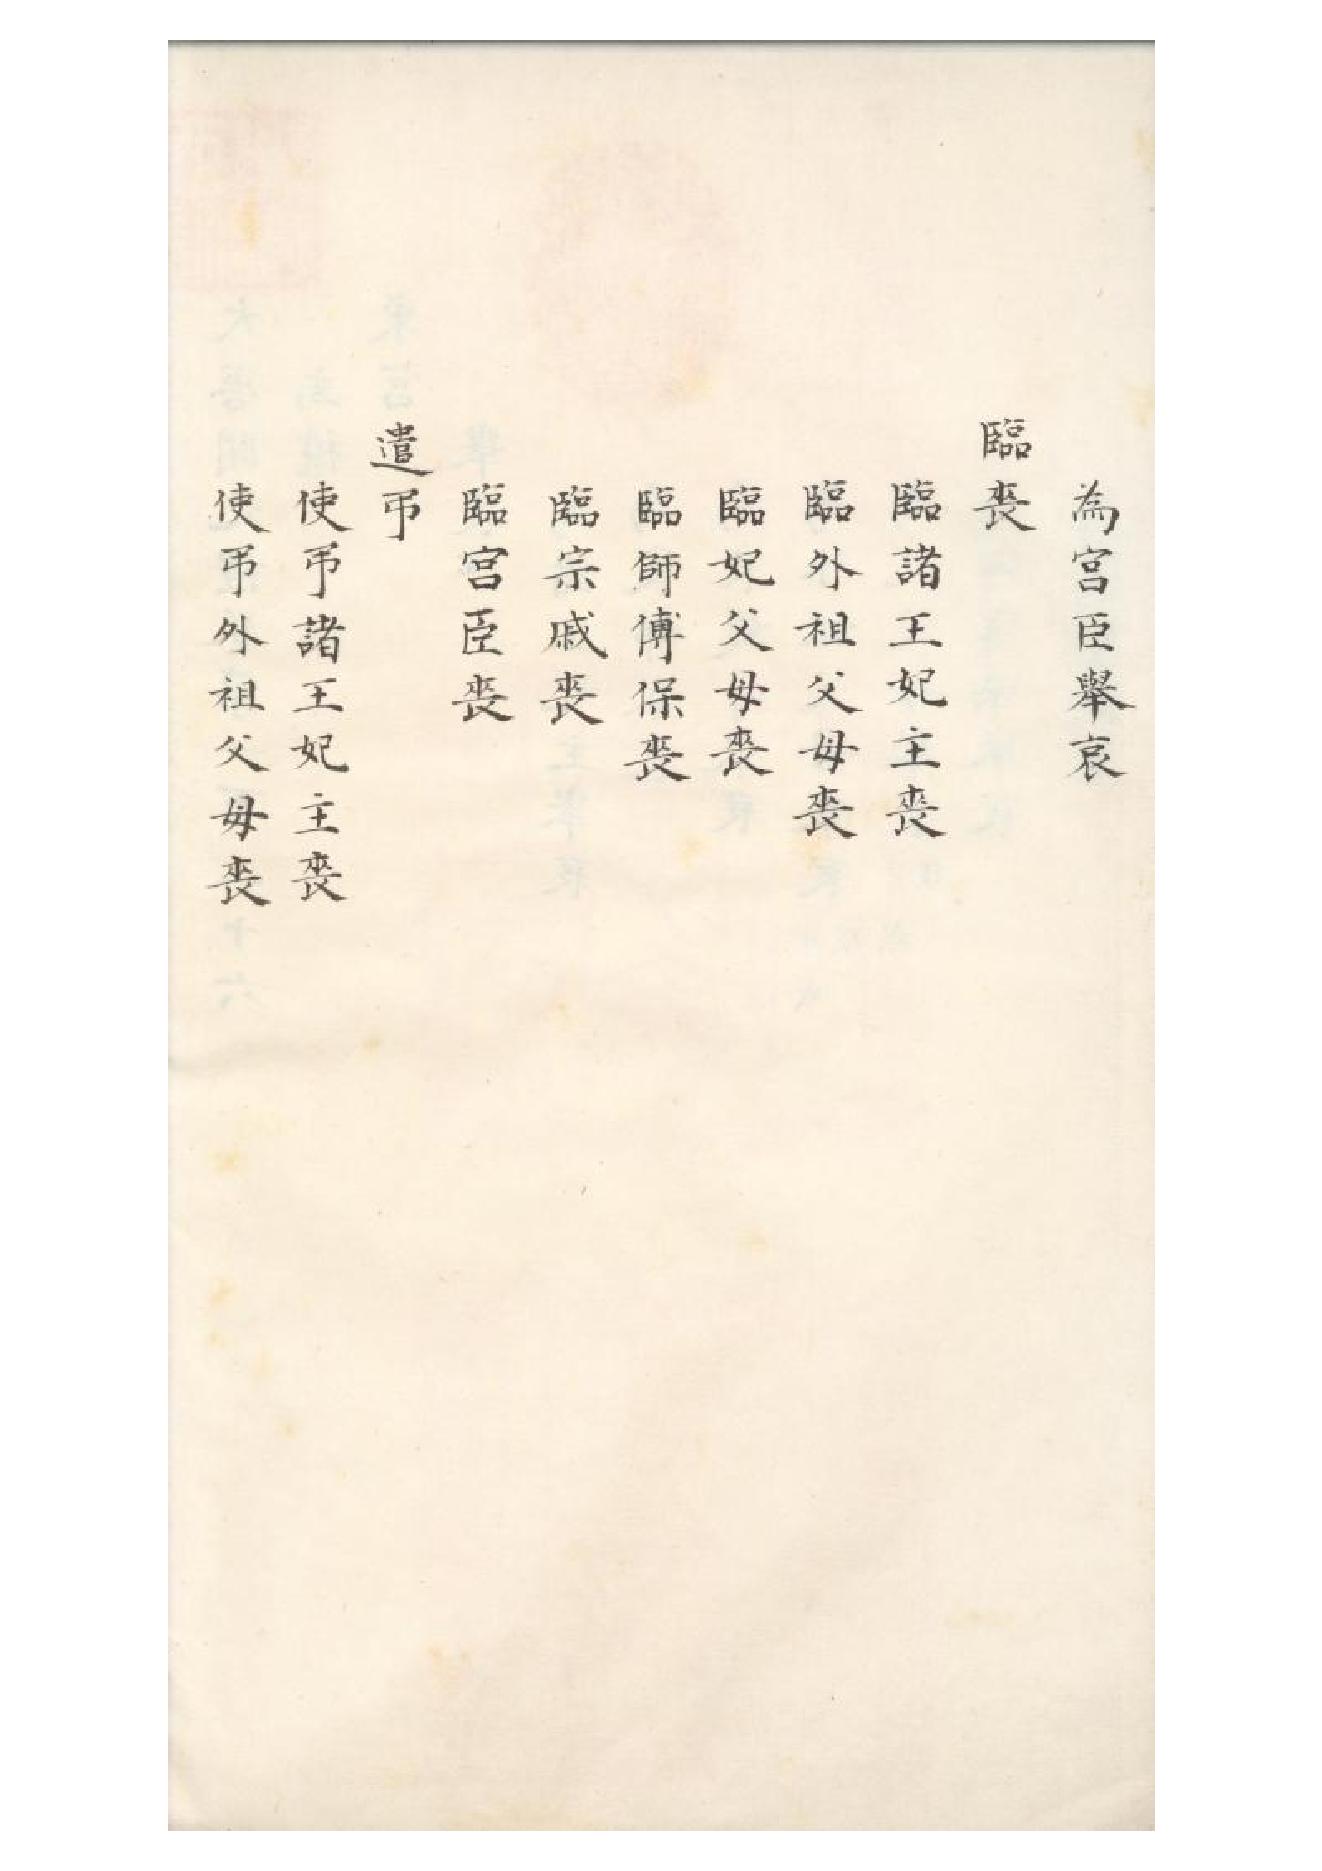 為宮臣舉哀
臨喪
臨諸王妃主喪
臨外祖父母喪
臨妃父母喪
臨師傅保喪
臨宗戚喪
臨宮臣喪
遣弔
使弔諸王妃主喪
使弔外祖父母喪